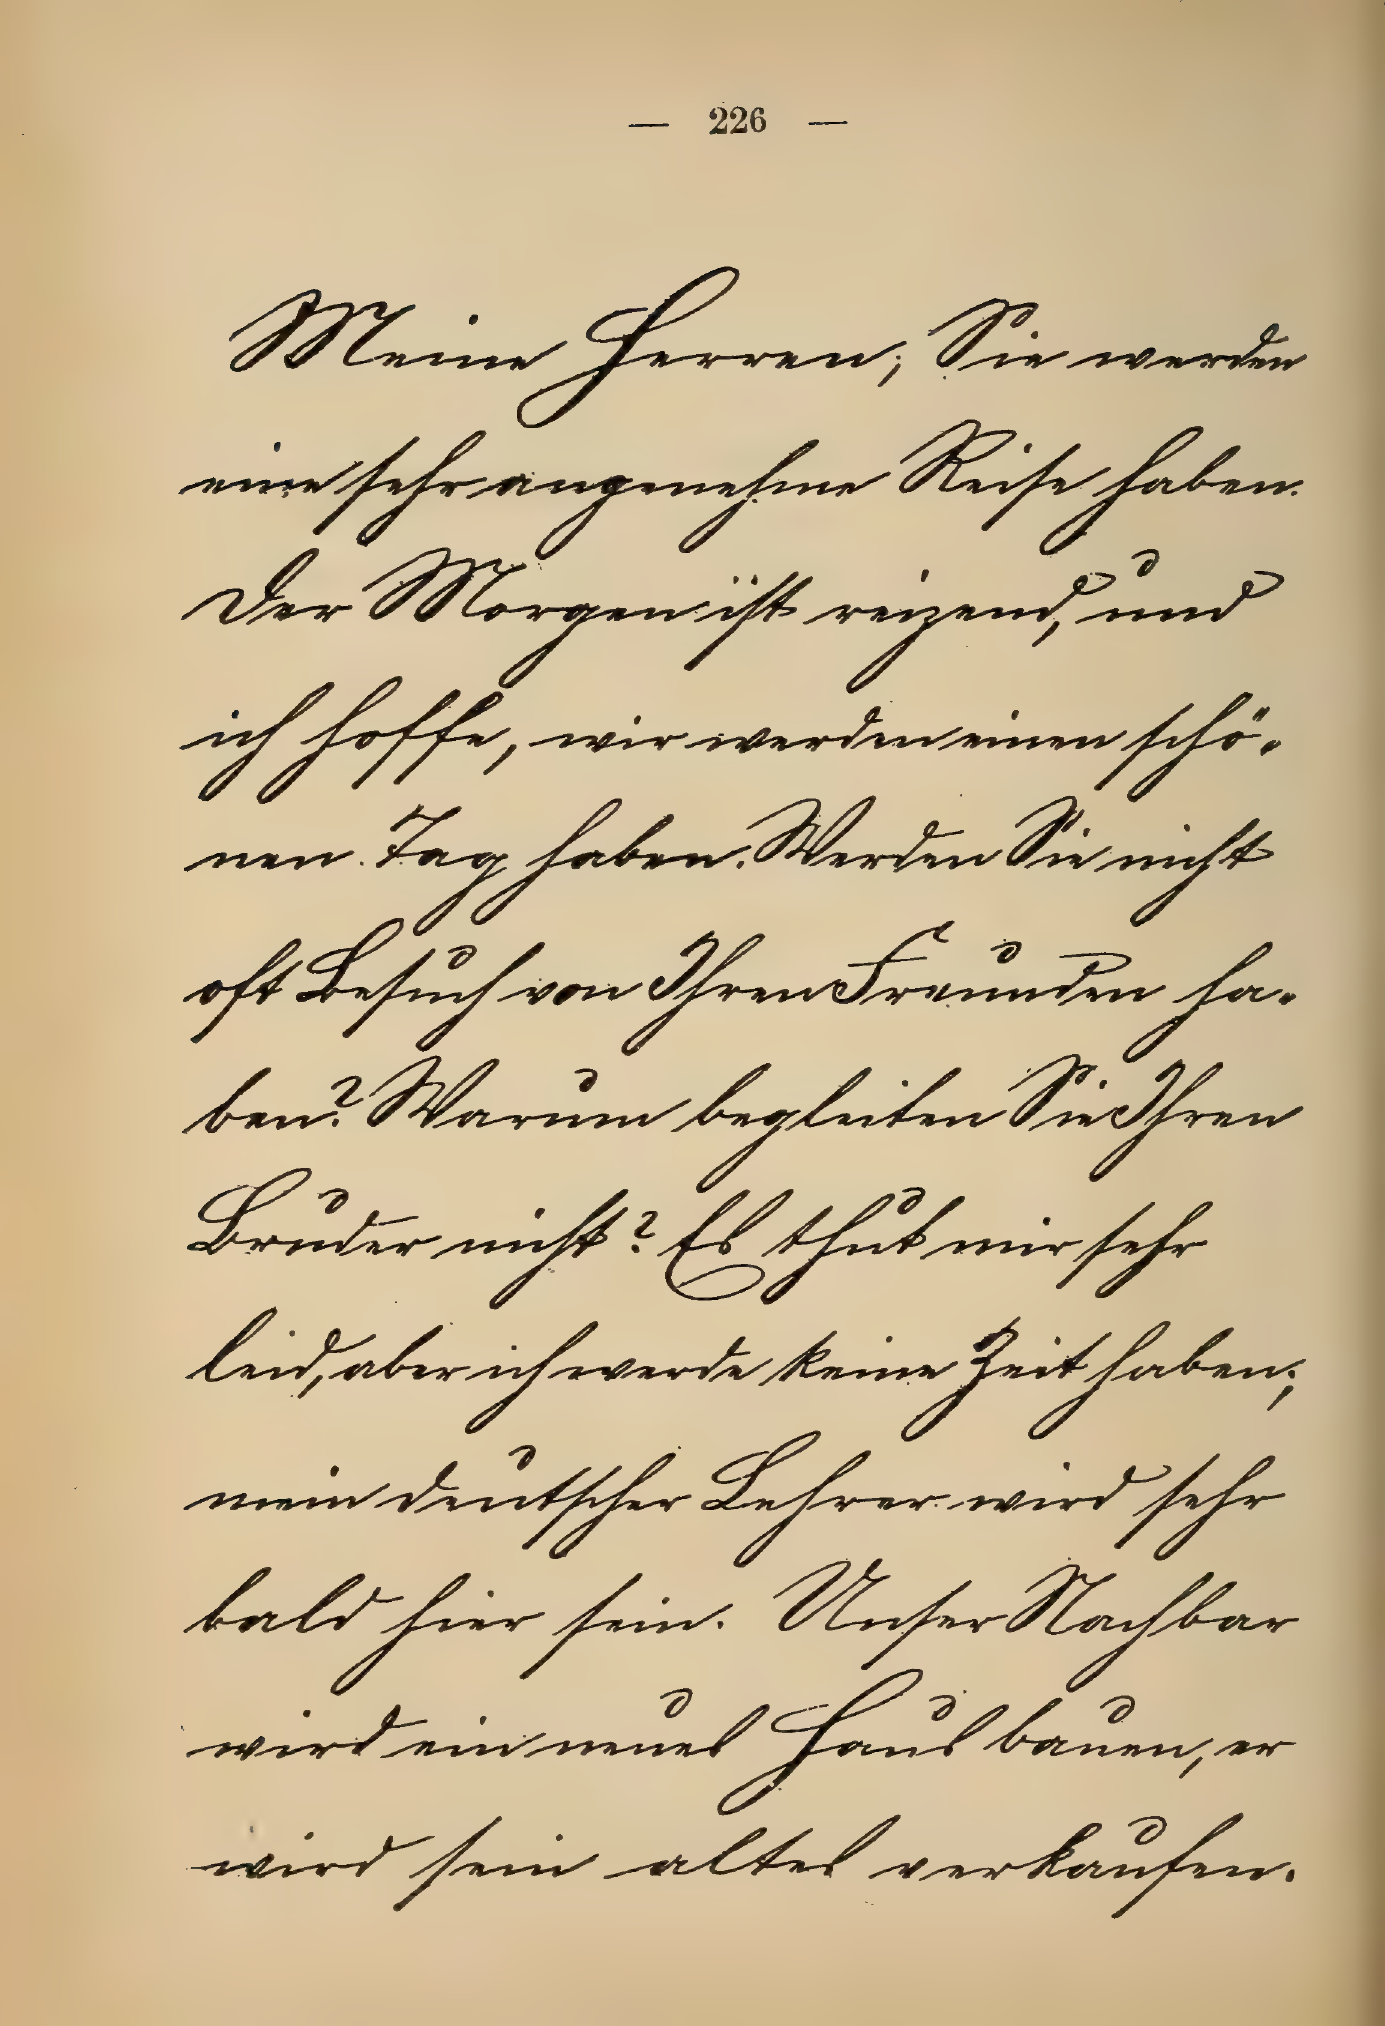 — 226 —
Meine Herren, Sie werden
eine sehr angenehme Reise haben.
Der Morgen ist reizend, und
ich hoffe, wir werden einen schö-
nen Tag haben. Werden Sie nicht
oft Besuch von Ihren Freunden ha-
ben? Warum begleiten Sie Ihren
Bruder nicht? Es thut mir sehr
leid, aber ich werde keine Zeit haben;
mein deutscher Lehrer wird sehr
bald hier sein. Unser Nachbar
wird ein neues Haus bauen, er
wird sein altes verkaufen.